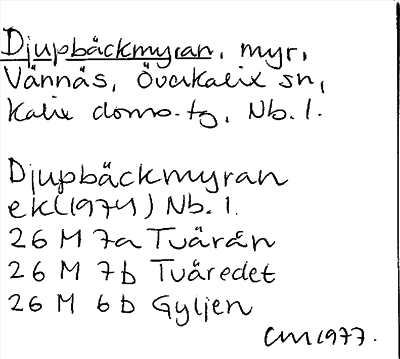 Djupbäckmyran, myr,
Vännäs, Överkalix sn,
Kalix doms.tg, Nb.l.
Djupbäckmyran
ek(1974) Nb.l.
26 M 7a Tvärån
26 M 7b Tväredet
26 M 6b Gyljen
CM1977.